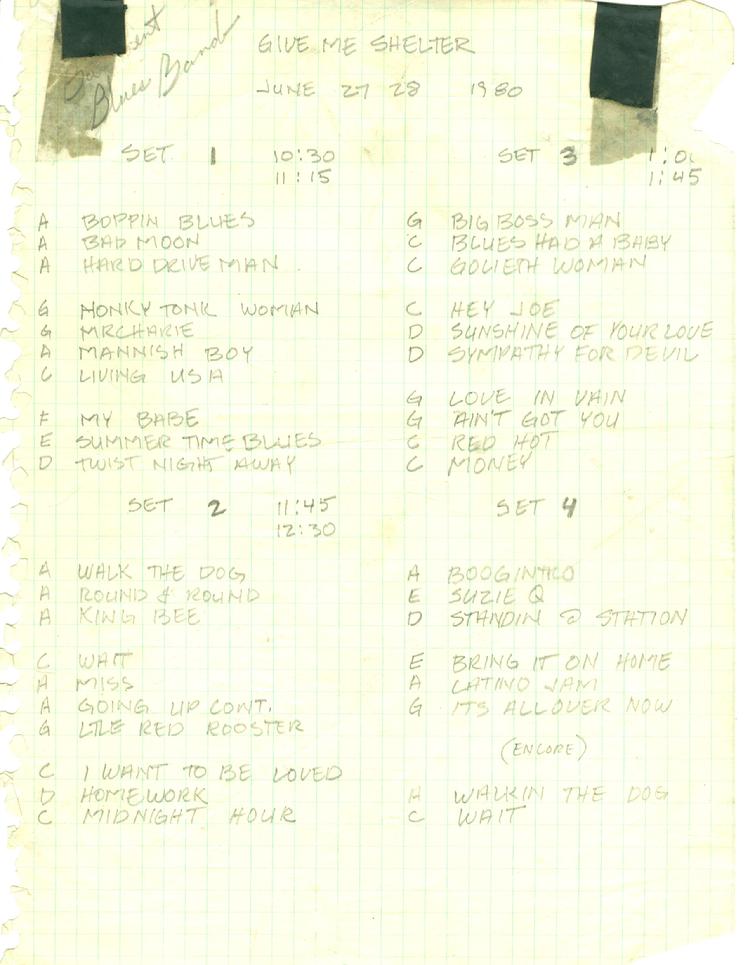 Blues Band
GIVE ME SHELTER
JUNE 27 28 1980
SET 1 10:30
11:15
A BOPPIN BLUES
A BAD MOON
A HARD DRIVE MAN
G HONKY TONK WOMAN
G MRCHARIE
A MANNISH BOY
C LIVING USA
E MY BABE
E SUMMER TIME BLUES
D TWIST NIGHT AWAY
SET 2 11:45
12:30
A WALK THE DOG
A ROUND & ROUND
A KING BEE
C WAIT
A MISS
A GOING UP CONT.
G LTLE RED ROOSTER
C I WANT TO BE LOVED
D HOMEWORK
C MIDNIGHT HOUR
SET 3 1:00
1:45
G BIG BOSS MAN
C BLUES HAD A BABY
C GOLIETH WOMAN
C HEY JOE
D SUNSHINE OF YOUR LOVE
D SYMPATHY FOR DEVIL
G LOVE IN VAIN
G AIN'T GOT YOU
C RED HOT
C MONEY
SET 4
A
E SUZIE Q
D STANDIN @ STATION
E BRING IT ON HOME
A LATINO JAM
G ITS ALL OVER NOW
(ENCORE)
A WALKIN THE DOG
C WAIT